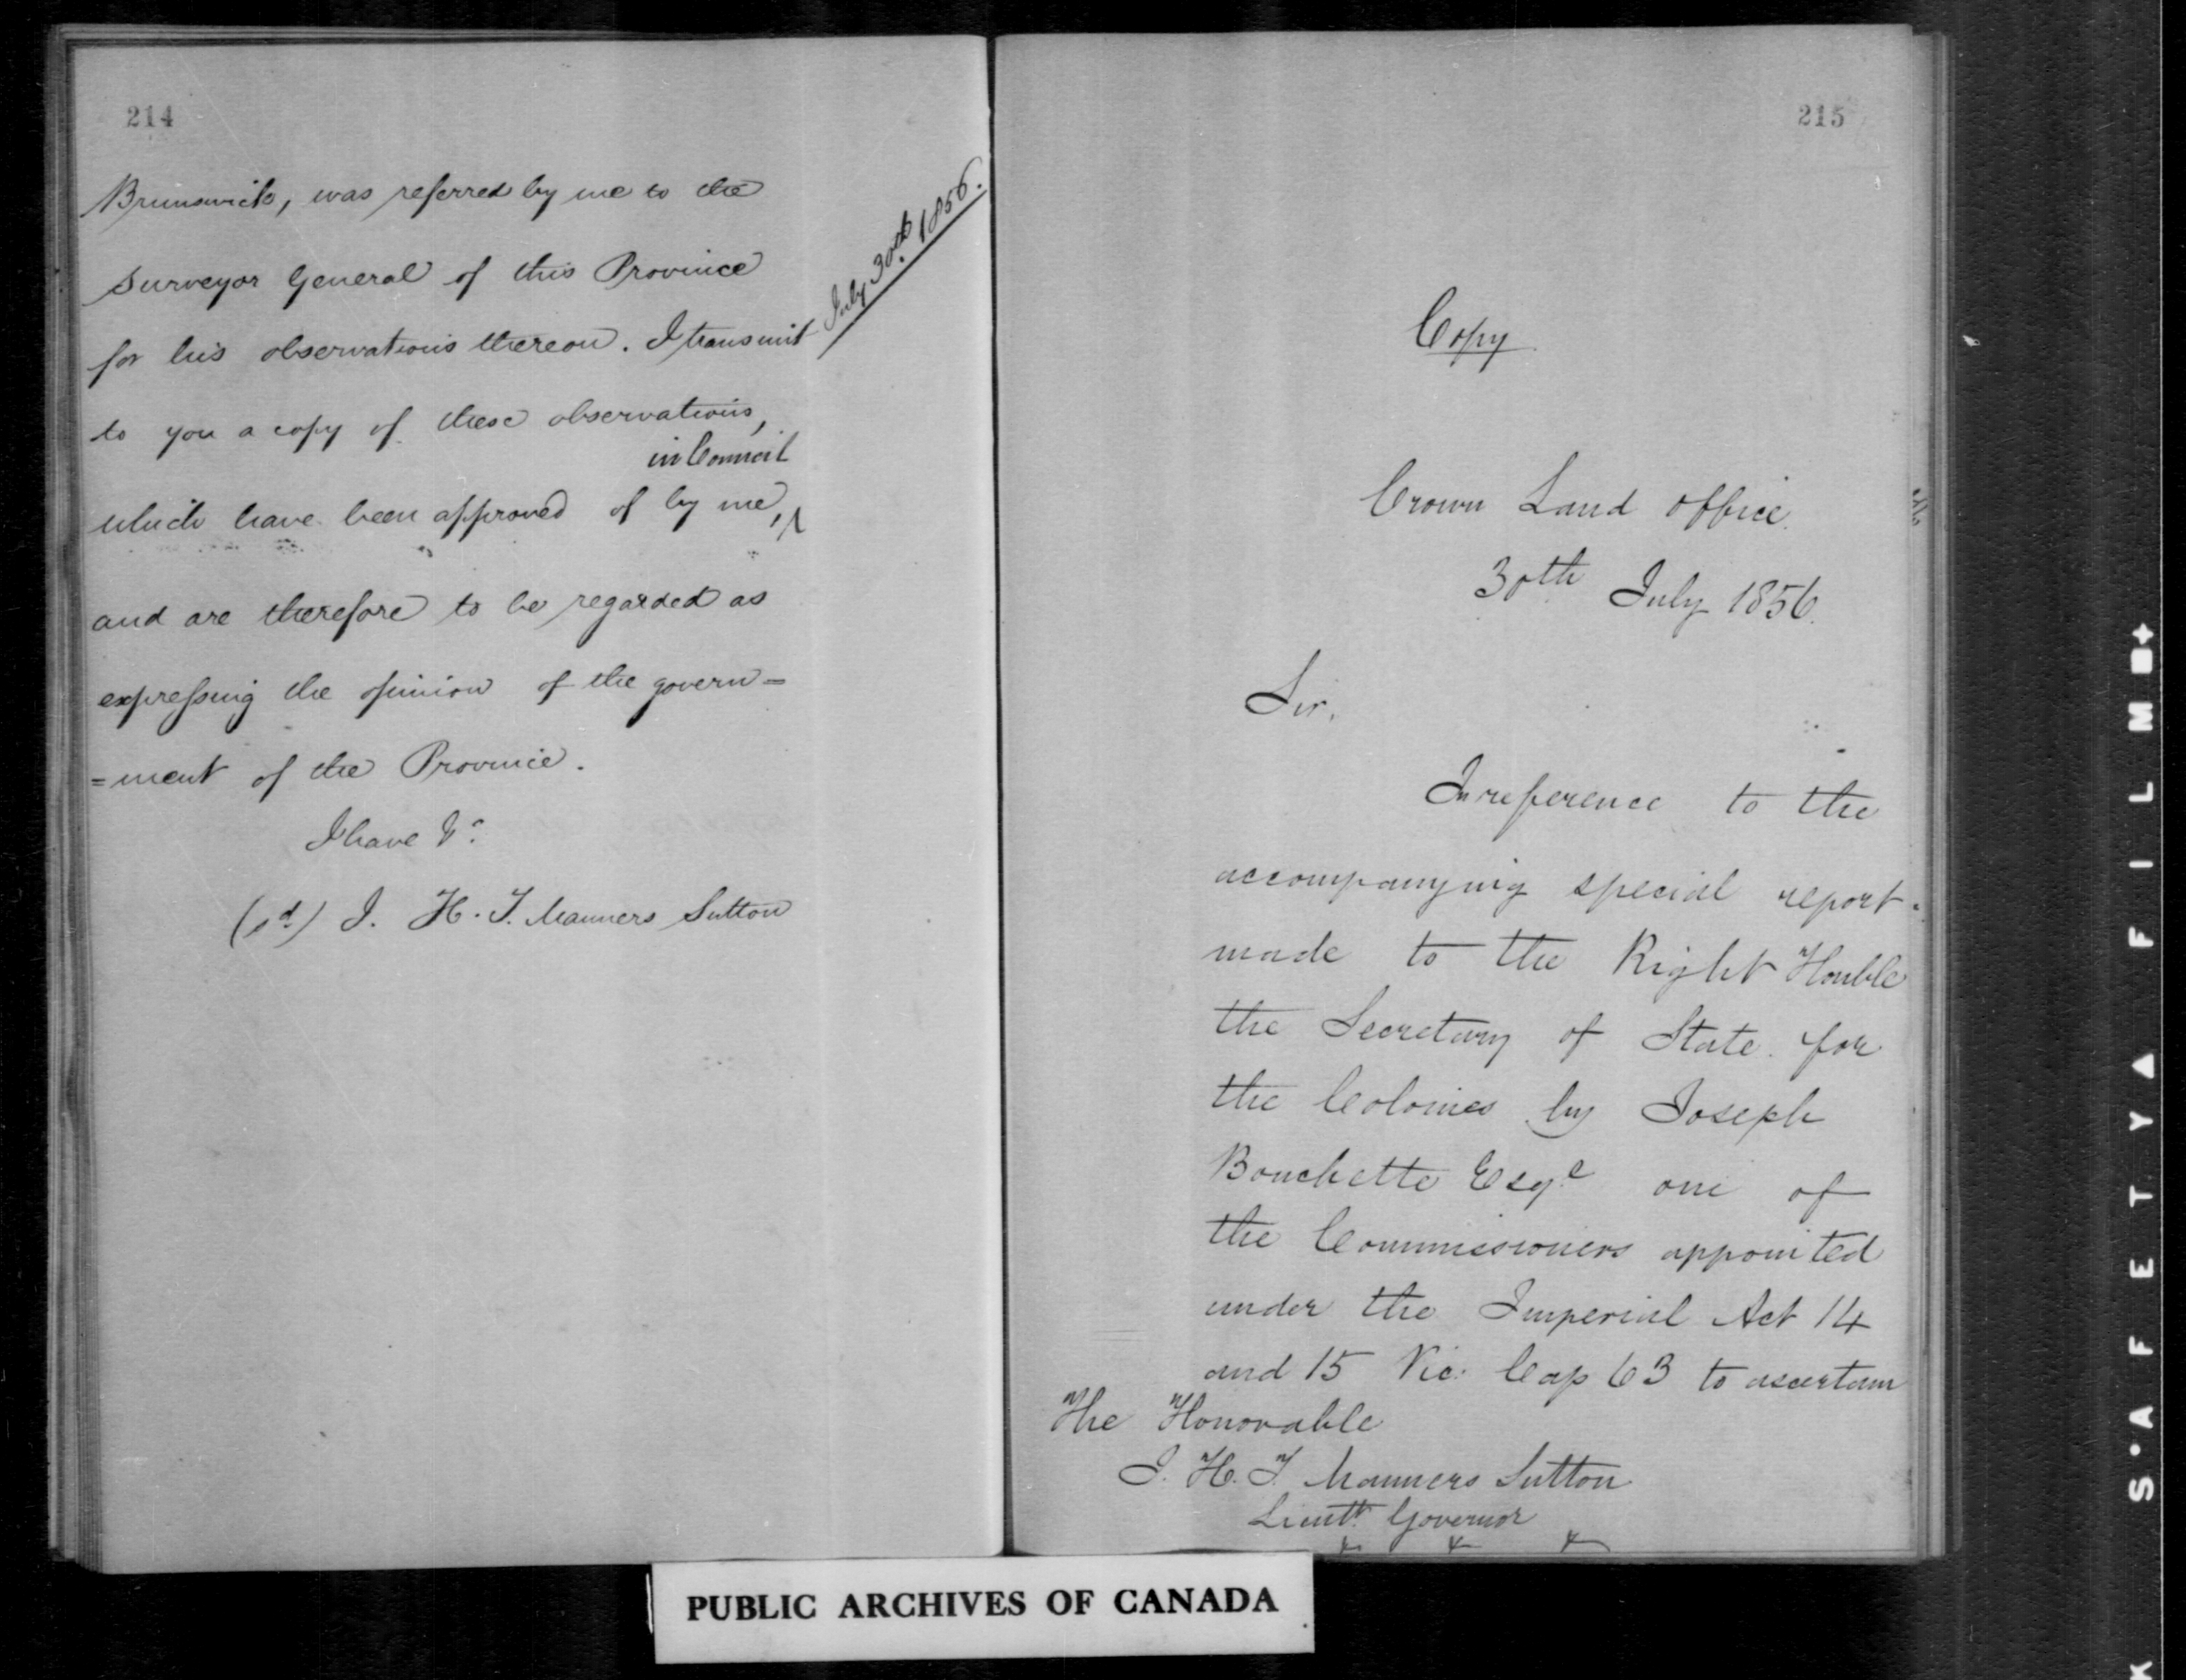 214
Brunswick, was referred by me to the
Surveyor General of this Province
for his observations thereon. I transmit
July 30th 1856.
to you a copy of these observations,
in Council
which have been approved of by me, ^
and are therefore to be regarded as
expressing the opinion of the govern=
=ment of the Province.
I have &c
(sd) J. H. T. Manners Sutton
215
Copy
Crown Land Office
30th July 1856.
Sir,
In reference to the
accompanying special report
made to the Right Honble
the Secretary of State for
the Colonies by Joseph
Bouchette Esqe one of
the Commissioners appointed
under the Imperial Act 14
and 15 Vic. Cap 63 to ascertain
The Honorable
J. H. T. Manners Sutton
Lieutt Governor
& & &
PUBLIC ARCHIVES OF CANADA
S'AFETY A FILM